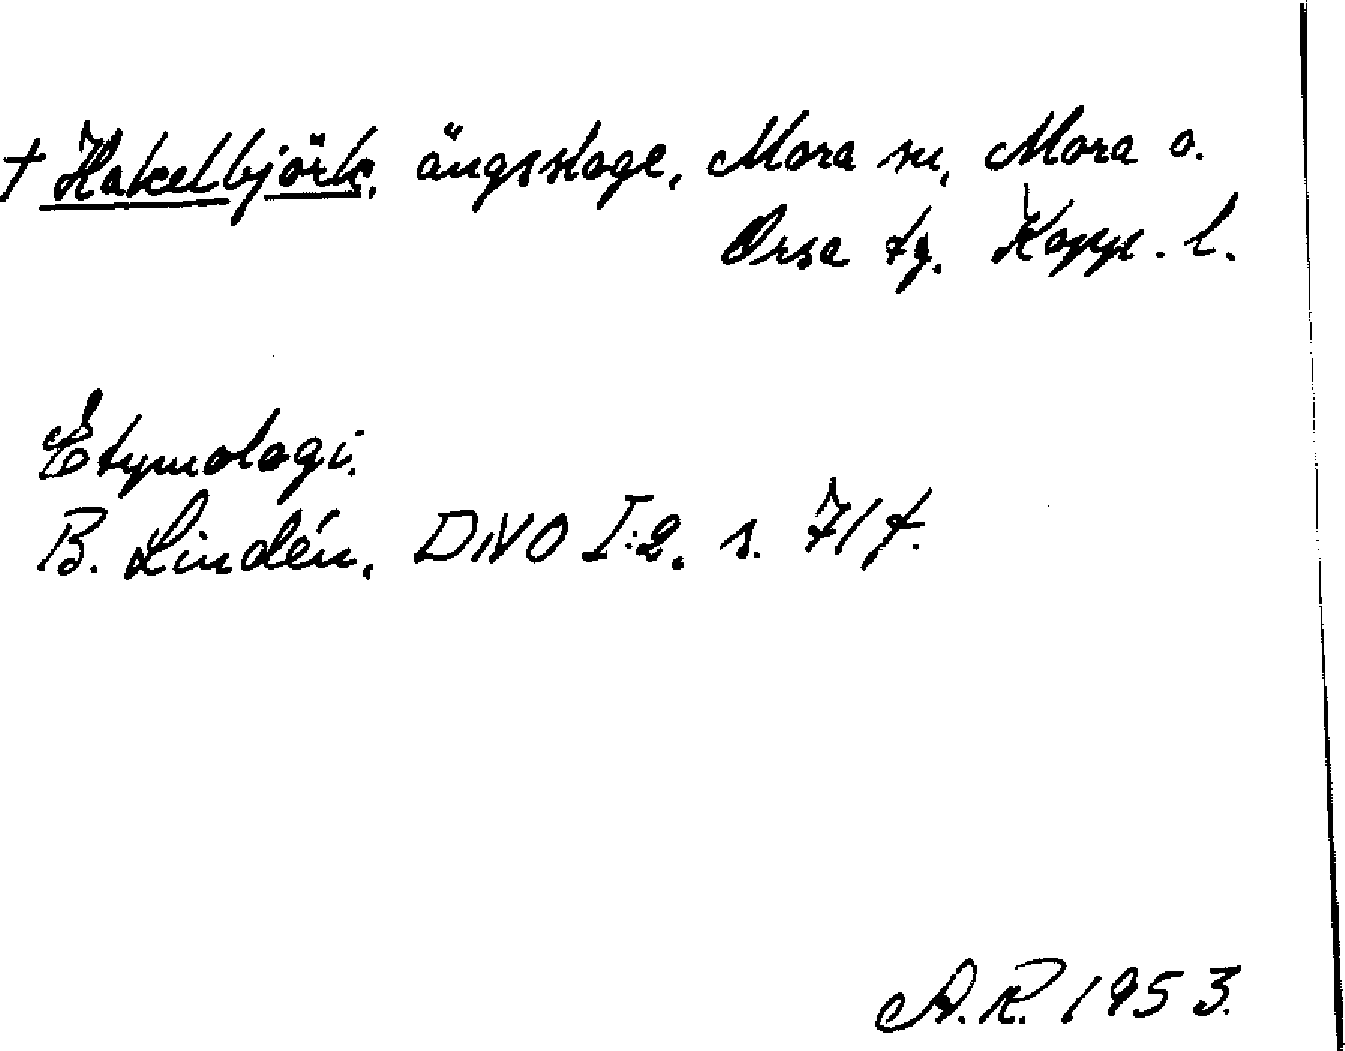 † Hakelbjörk, ängsskoge, Mora sn, Mora o.
Orsa tg. Kopp. l.
Etymologi.
B. Lindén, DNO I:2. s. 71 f.
A.R. 1953.